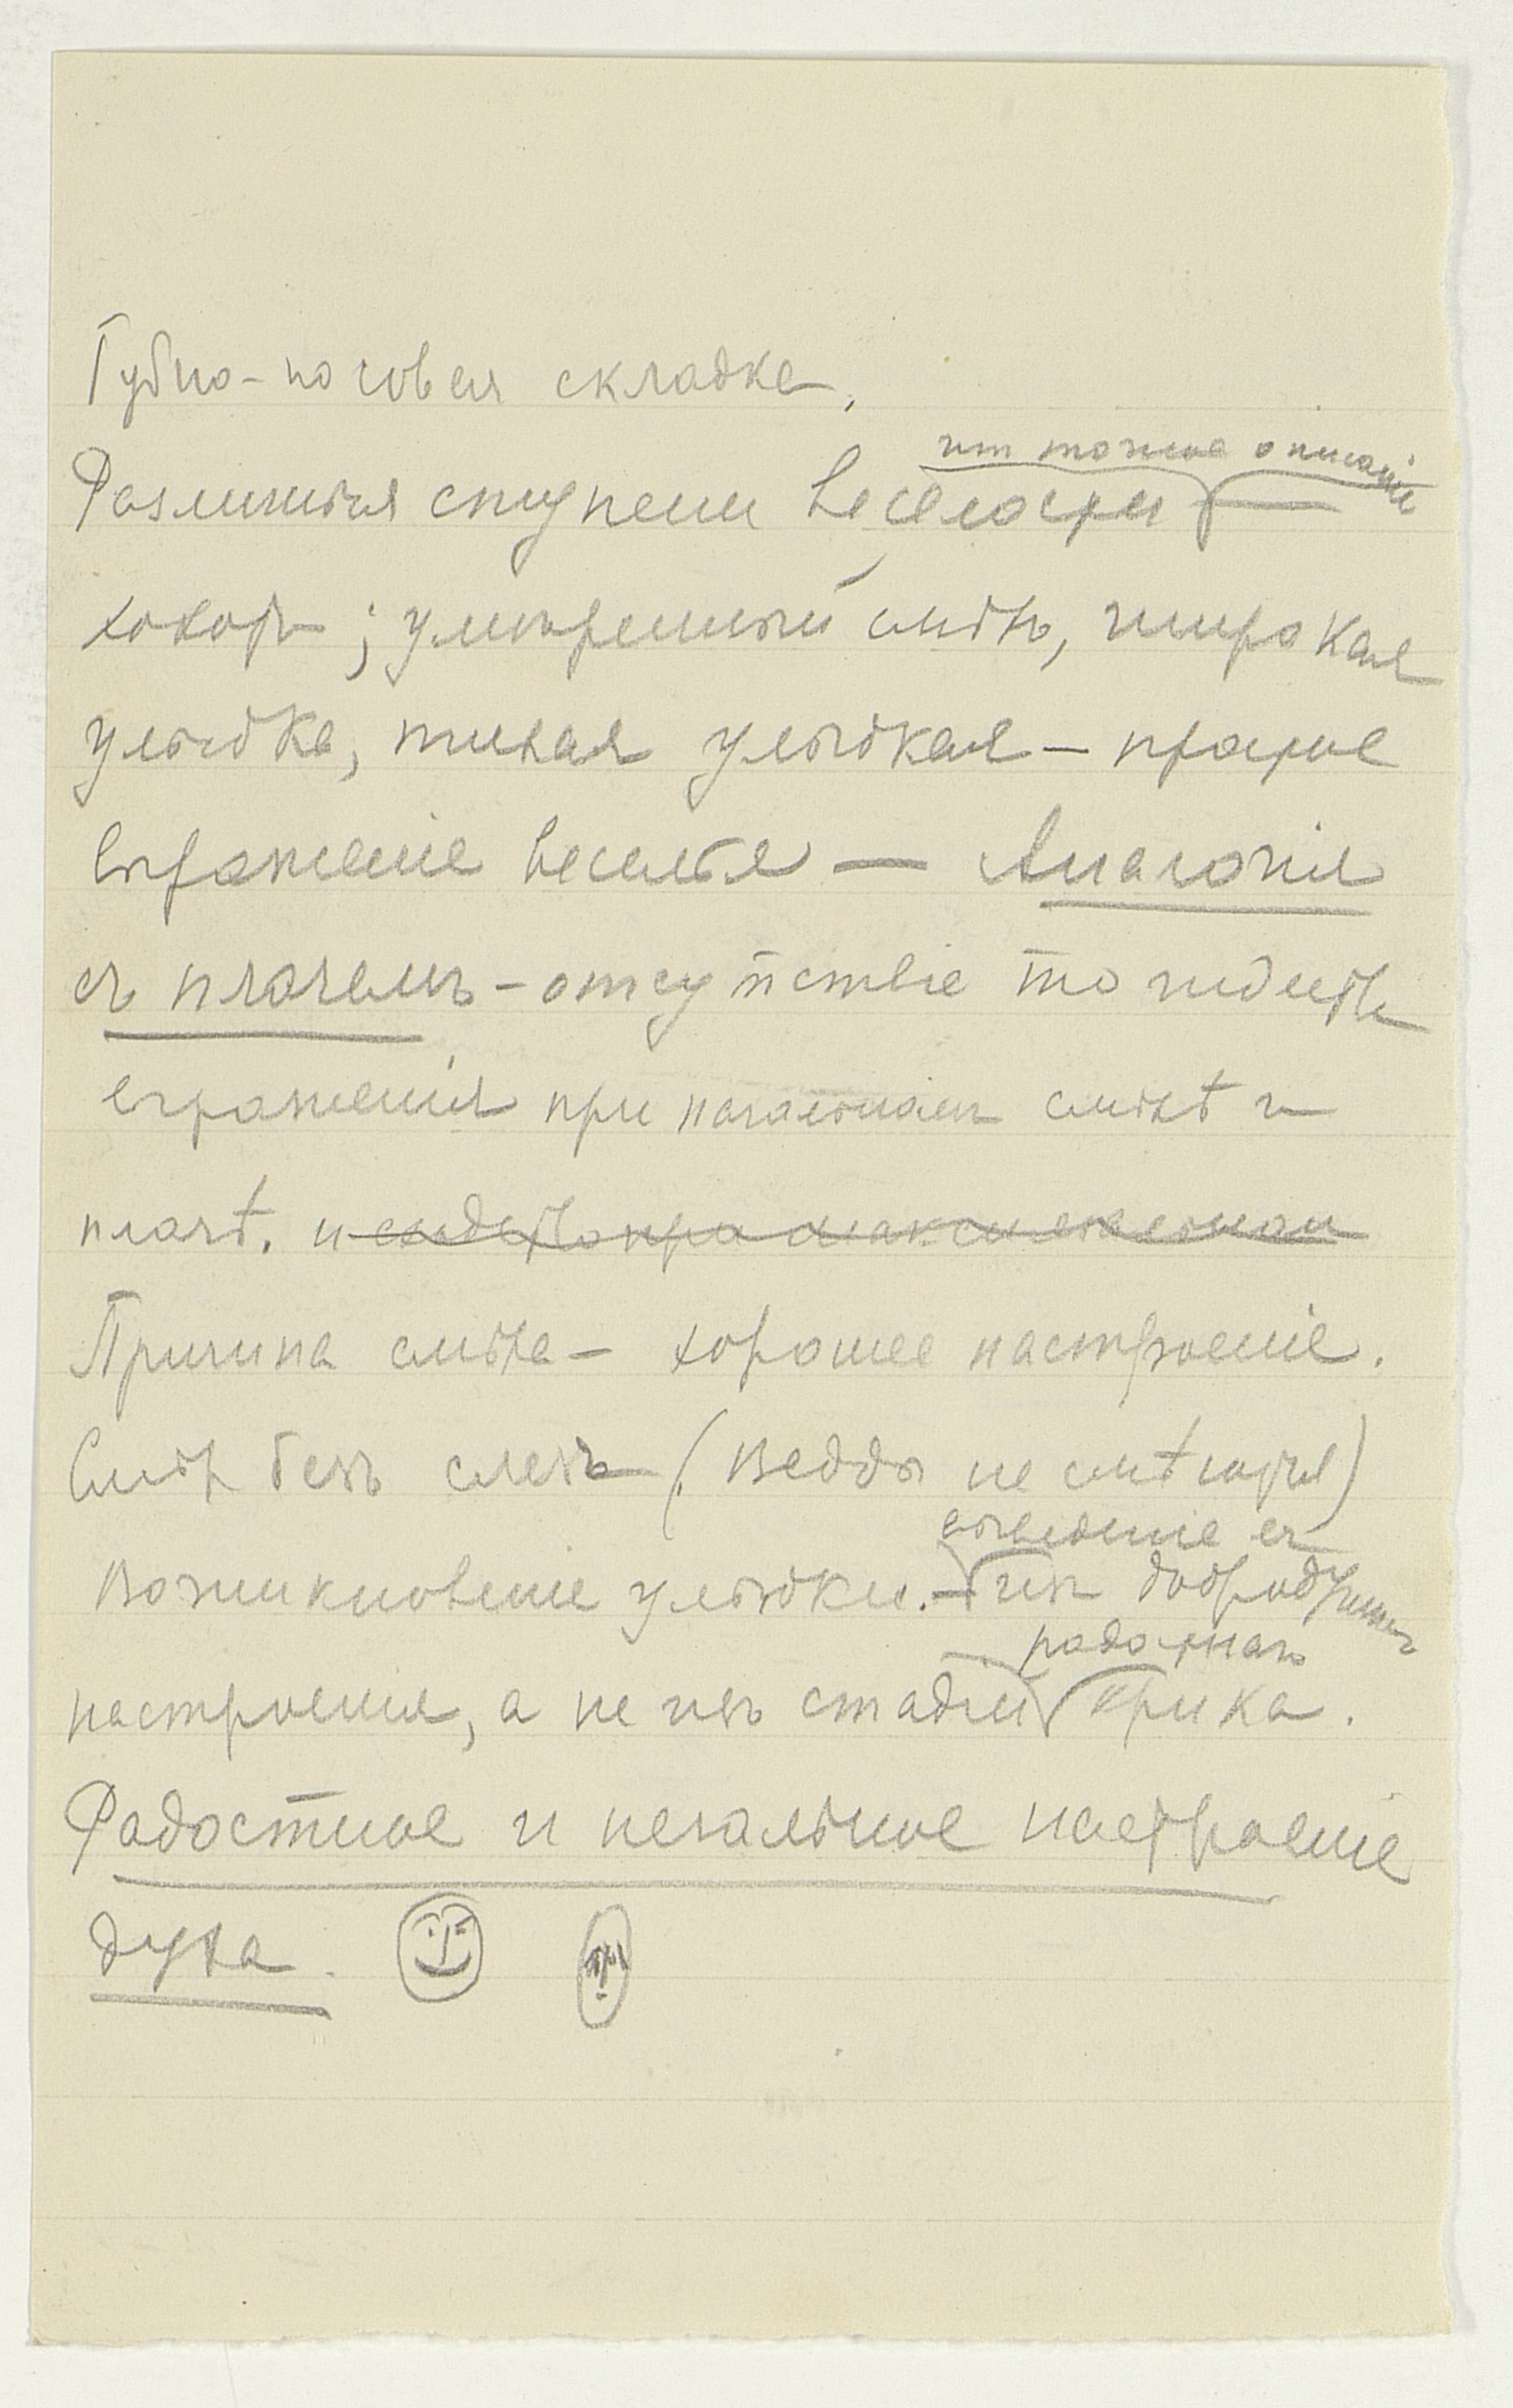 Губно-носовая складка.
Различныя ступени веселости
хохотъ; умѣренный смѣхъ, широкая
улыбка, тихая улыбкая — простое
выраженіе веселья — Аналогія
съ плачемъ - отсутствіе тождества
выраженія при начальномъ смѣхѣ и
плачѣ. и сходство при максимальном
Причина смѣха — хорошее настроеніе.
Смѣх безъ слезъ (Ведды не смѣются)
выведеніе ея
Возникновеніе улыбки. — изъ добродушнаго
радостнаго
настроенія, а не изъ стадіи крика.
Радостное и печальное настроеніе
духа.